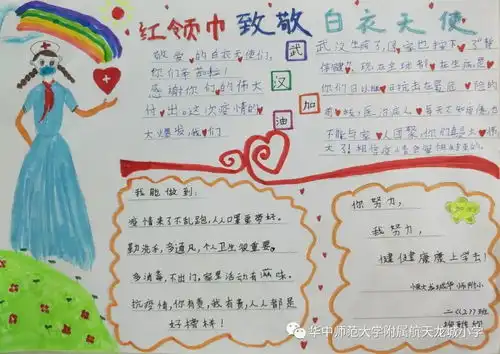 红领巾致敬白衣天使
敬爱的白衣天使们,
你们辛苦啦!
感谢你们的伟大
付出。这次疫情的
大爆发,我们
武
汉
加
油
武汉生病了,国家也按下了"暂
停键"。现在全球都在生病是
你们日以继日抗击在最危险的
不能与家人团聚,你们真是太伟
大了!相信疫情会
我能做到:
疫情来了不乱跑,人人口罩要带好。
勤洗手,多通风,个人卫生很重要。
多消毒,不出门,家里活动有滋味。
抗疫情,你有责,我有责,人人都是
好榜样!
你努力,
我努力,
健健康康上学去!
二《2》班
华中师范大学附属航天龙城小学